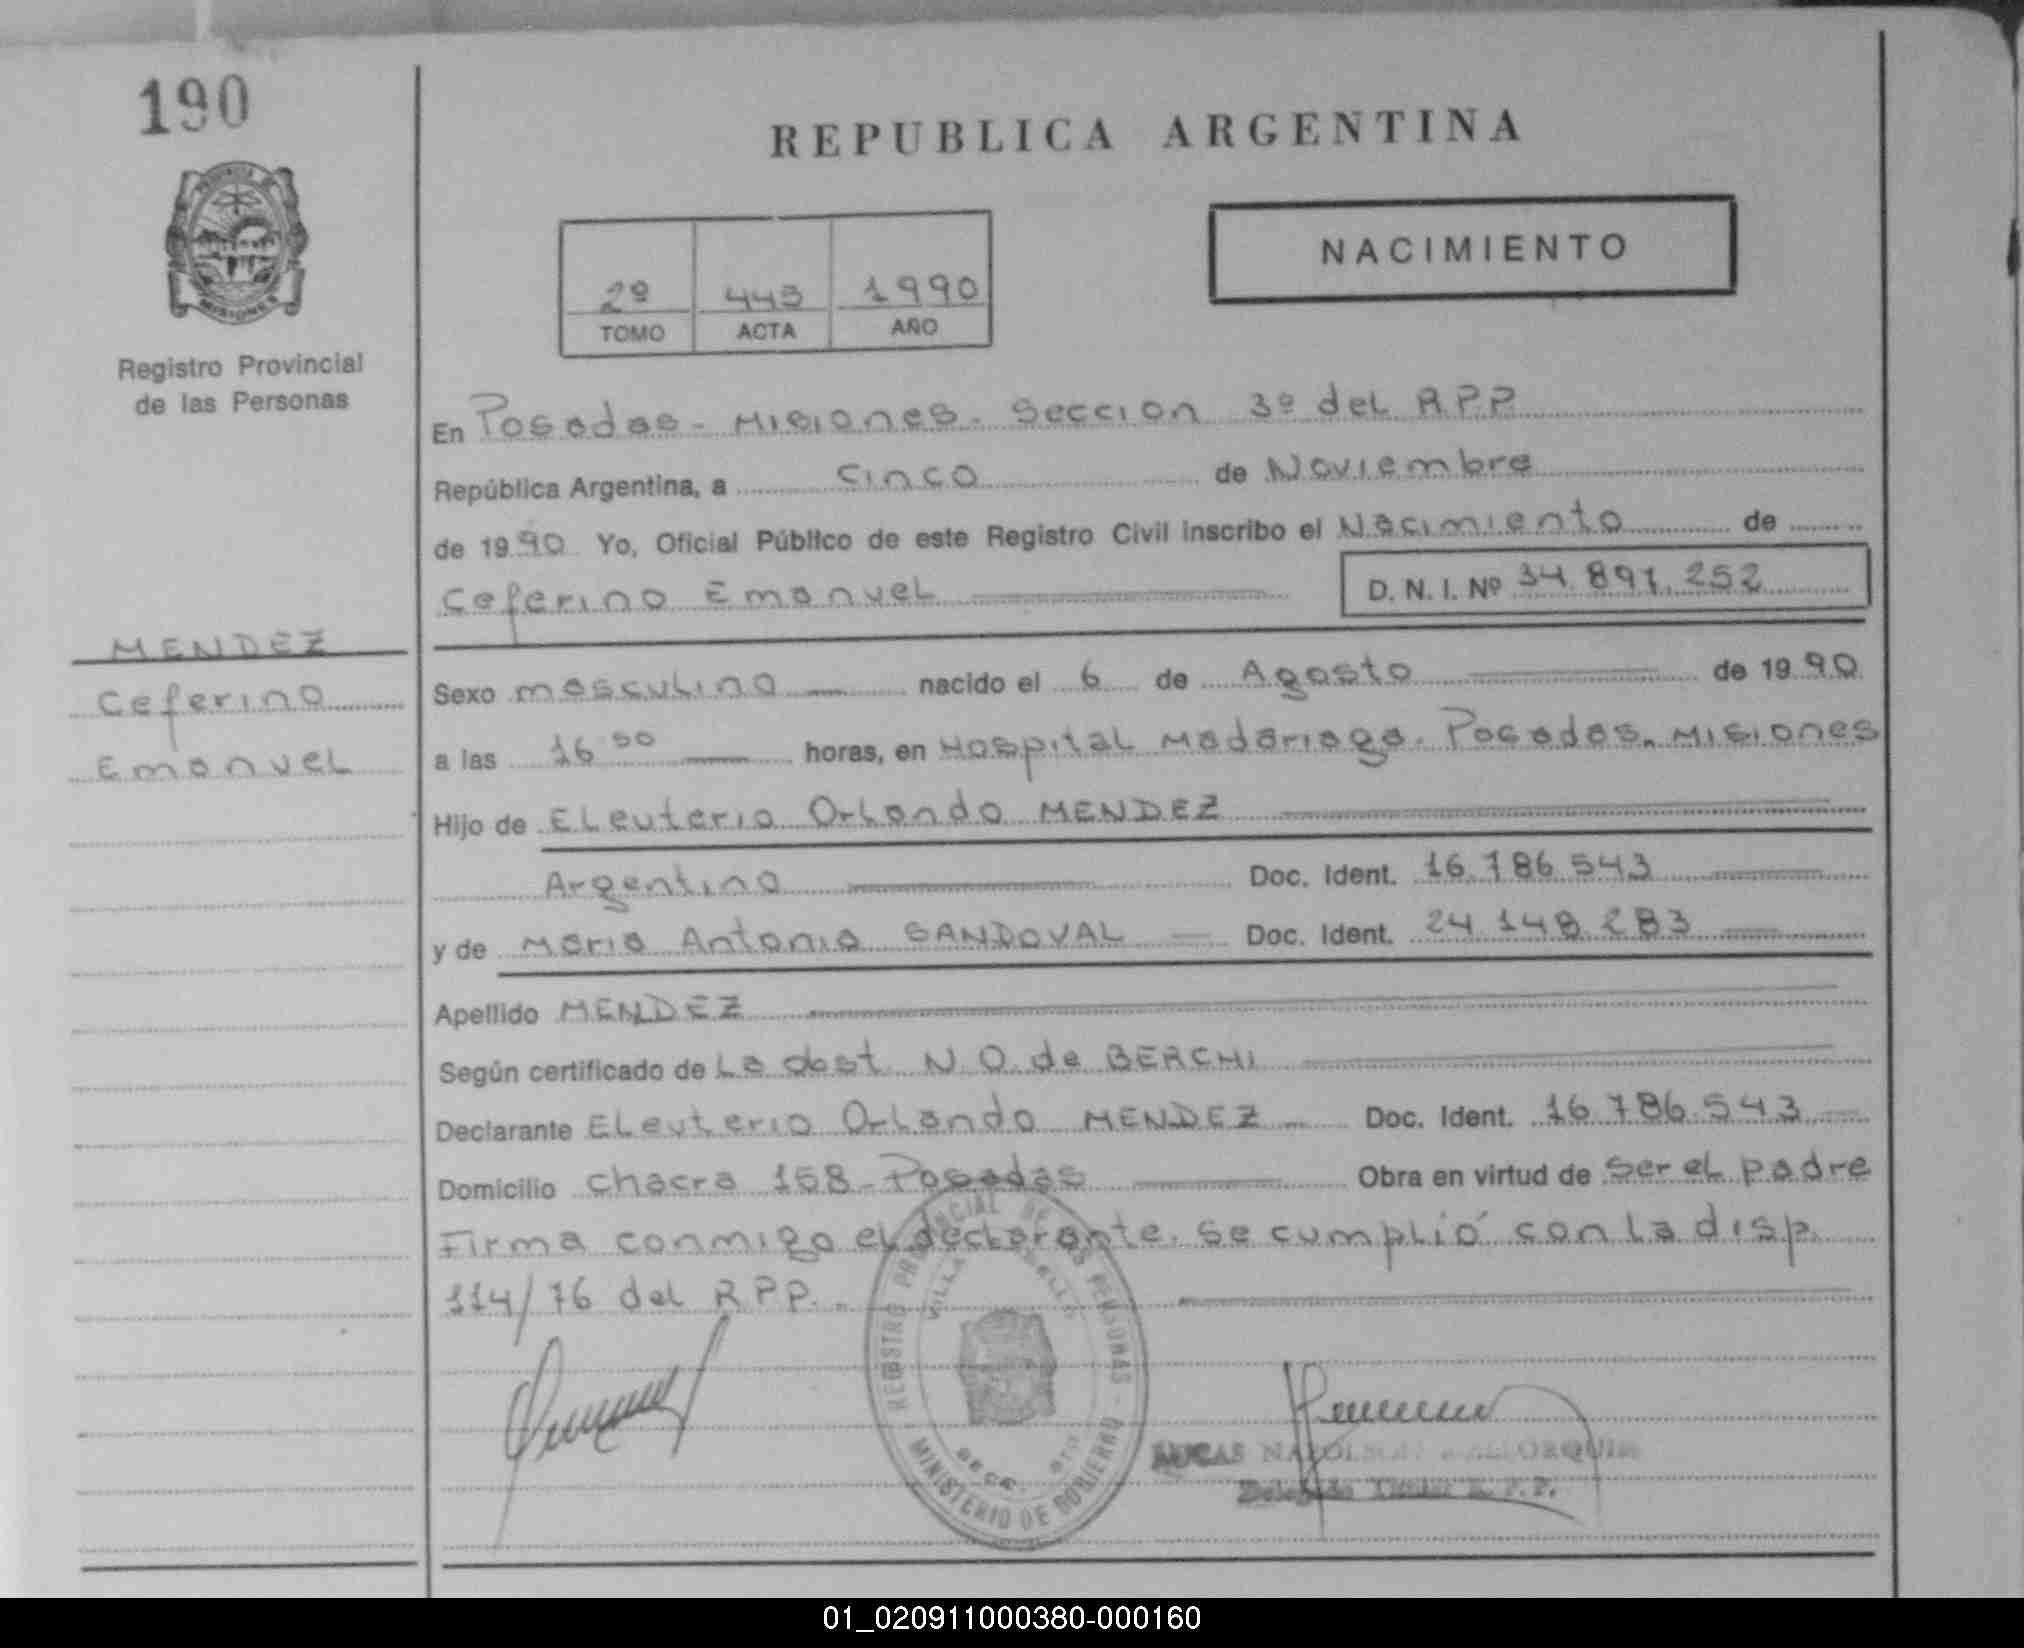 190
REPUBLICA ARGENTINA
NACIMIENTO
2º 443 1990
TOMO ACTA AÑO
PROVINCIA DE
MISIONES
Registro Provincial
de las Personas
En Posadas - Misiones. Seccion 3º del R.P.P
República Argentina, a cinco de Noviembre
de 1990 Yo, Oficial Público de este Registro Civil inscribo el Nacimiento de
Ceferino Emanuel D. N. I. Nº 34.891.252
MENDEZ
Ceferino
Emanuel
Sexo masculino nacido el 6 de Agosto de 1990
a las 16 horas, en Hospital Madariaga. Posadas. Misiones
Hijo de Eleuterio Orlando MENDEZ
Argentino Doc. Ident. 16.786.543
y de Maria Antonia SANDOVAL Doc. Ident. 24.148.283
Apellido MENDEZ
Según certificado de La obst. N. O. de BERCHI
Declarante Eleuterio Orlando MENDEZ Doc. Ident. 16.786.543
Domicilio chacra 158 - Posadas Obra en virtud de ser el padre
Firma conmigo el declarante. Se cumplió con la disp.
114/76 del R.P.P.
REGISTRO PROVINCIAL DE LAS PERSONAS - MINISTERIO DE GOBIERNO
VILLA
LUCAS NAPOLEON
Delegado Titular R. P. P.
01_020911000380-000160